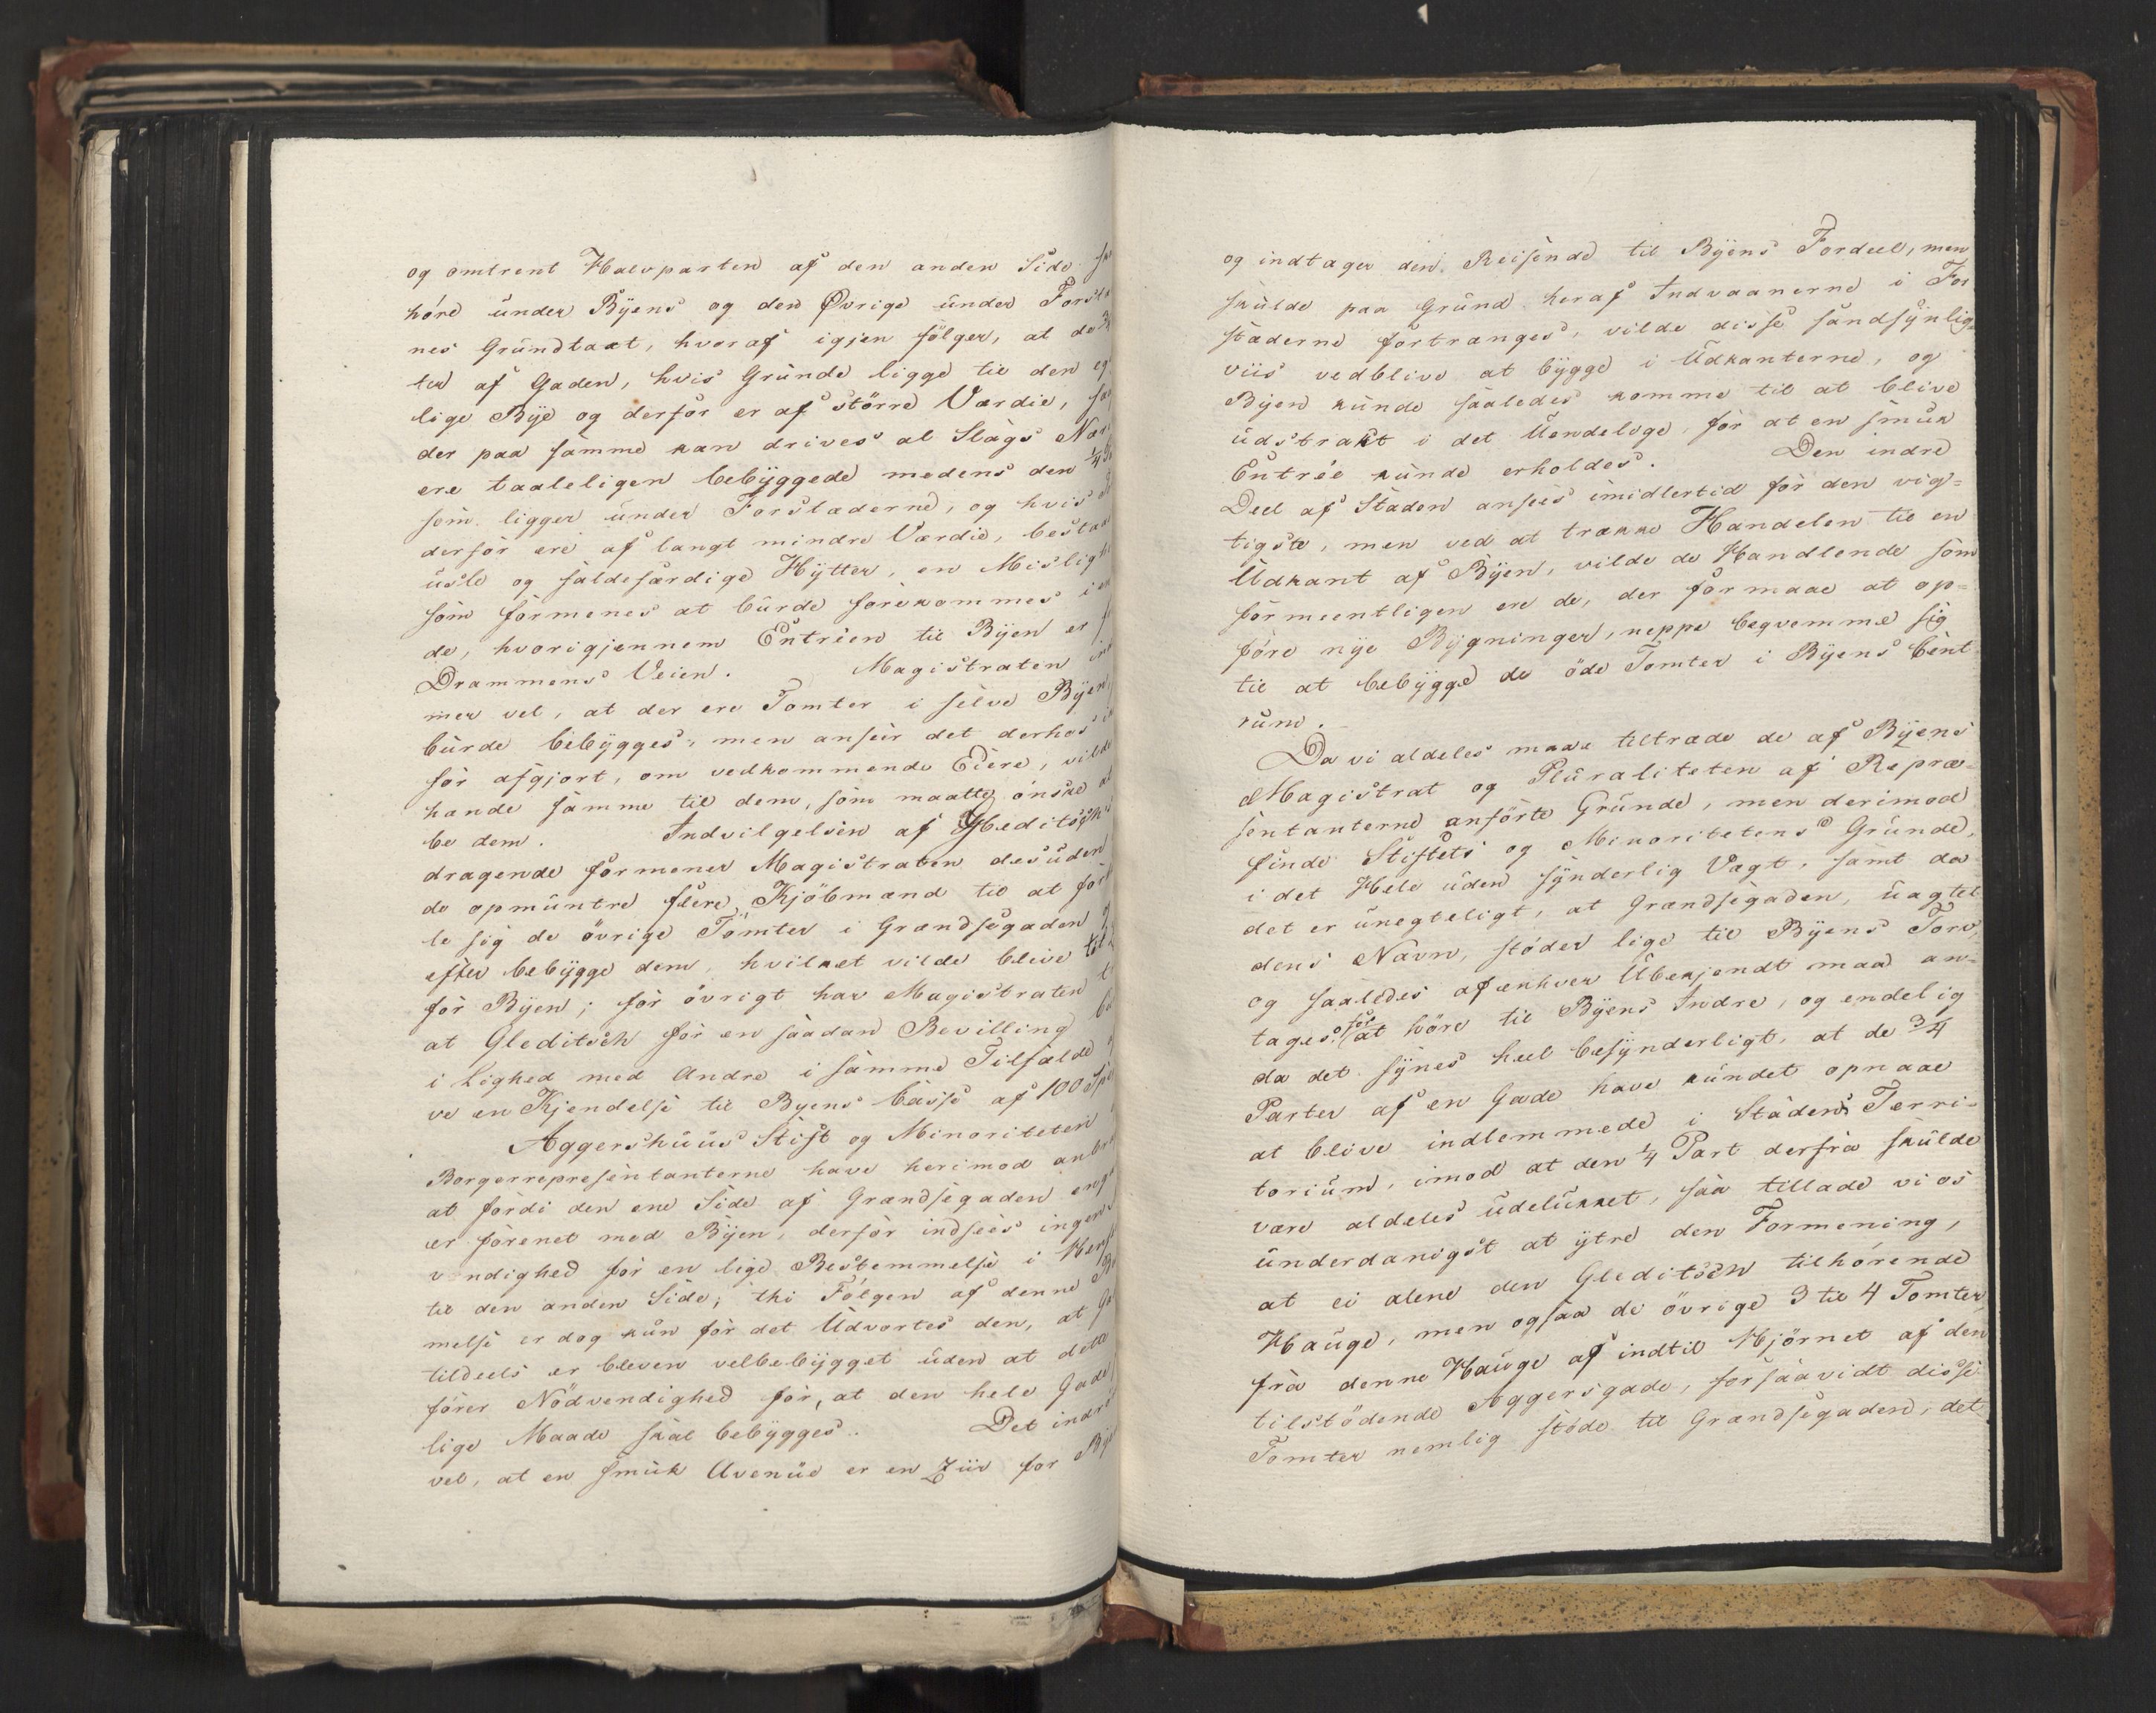 og omtrent Halvparten af den anden Side
høre under Byens og den Øvrige under Forstæ
nes Grundtaxt, hvoraf igjen følger, at de 3/4
ter af Gaden, hvis Grunde ligge til den eg
lige Bye og derfor er af større Værdie,
der paa samme kan drives al Slags Nær
ere taaleligen bebyggede medens den 1/4
som ligger under Forstæderne, og hvis
derfor ere af langt mindre Værdie, bestaae
usle og faldefærdige Hytter, en Mislighe
som formenes at burde forekommes i en
de, hvorigjennem Entréen til Byen er
Drammens Veien. Magistraten
mer vel, at der ere Tomter i selve Byen,
burde bebygges, men anseer det derhos
for afgjort, om vedkommende Eiere, vilde
hænde samme til dem, som maatte ønske at
be dem. Indvilgelsen af Gleditsch's
dragende formener Magistraten desuden
de opmuntre flere Kjøbmænd til at for
le sig de øvrige Tomter i Grændsegaden
efter bebygge dem, hvilket vilde blive til
for Byen; for øvrigt har Magistraten
at Gleditsch for en saadan Bevilling
i Lighed med Andre i samme Tilfælde
ve en Kjendelse til Byens Casse af 100 Spd
Aggershuus Stift og Minoriteten
Borgerrepresentanterne have herimod anbra
at fordi den ene Side af Grændsegaden eng
er forenet med Byen, derfor indsees ingen
vendighed for en lige Bestemmelse i Hens
til den anden Side; thi Følgen af denne Be
melse er dog kun for det Udvortes den, at Ga
tildeels er bleven velbebygget uden at dette
fører Nødvendighed for, at den hele Gade
lige Maade skal bebygges. Det indrø
vel, at en smuk Avenüe er en Ziir for By
og indtager den Reisende til Byens Fordeel, men
skulde paa Grund heraf Indvaanerne i For
stæderne fortrænges, vilde disse sandsynlig
viis vedblive at bygge i Udkanterne, og
Byen kunde saaledes komme til at blive
udstrakt i det Uendelige, for at en smuk
Entrée kunde erholdes. Den indre
Deel af Staden ansees imidlertid for den vig=
tigste, men ved at trække Handelen til en
Udkant af Byen, vilde de Handlende som
formeentligen ere de, der formaae at op=
føre nye Bygninger, neppe beqvemme sig
til at bebygge de øde Tomter i Byens Cent
rum.
Da vi aldeles maae tiltræde de af Byens
Magistrat og Pluraliteten af Repræ=
sentanterne anførte Grunde, men derimod
finde Stiftets og Minoritetens Grunde,
i det Hele uden synderlig Vægt, samt da
det er unegteligt, at Grændsegaden, uagtet
dens Navn, støder lige til Byens Torv,
og saaledes af enhver Ubekjendt maa an=
tages for at høre til Byens Indre, og endelig
da det synes heel besynderligt, at de 3/4
Parter af en Gade have kundet opnaae
at blive indlemmede i Stadens Terri=
torium, imod at den 1/4 Part derfra skulde
være aldeles udelukket, saa tillade vi os
underdanigst at ytre den Formening,
at ei alene den Gleditsch tilhørende
Hauge, men ogsaa de øvrige 3 til 4 Tomter
fra denne Hauge af indtil Hjørnet af den
tilstødende Aggersgade, forsaavidt disse
Tomter nemlig støde til Grændsegaden, det